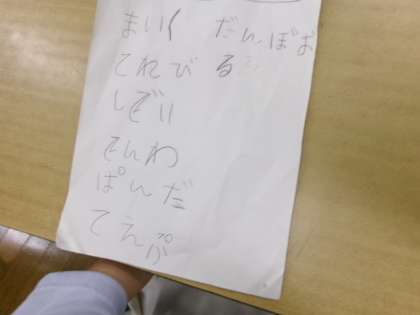 まいく
てれび
しでい
でんわ
ぱんだ
てえぷ
だんぼぱお
る